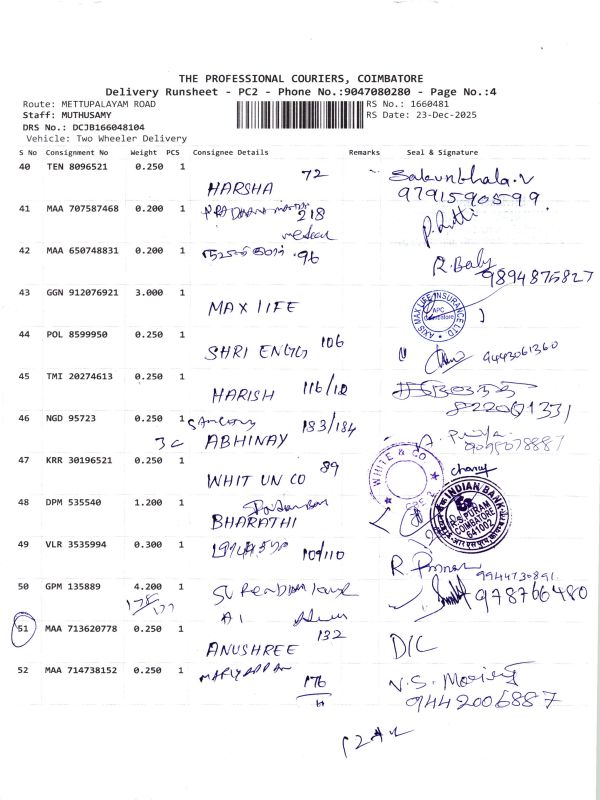 THE PROFESSIONAL COURIERS, COIMBATORE
Delivery Runsheet - PC2 - Phone No.:9047080280 - Page No.:4
Route: METTUPALAYAM ROAD RS No.: 1660481
Staff: MUTHUSAMY RS Date: 23-Dec-2025
DRS No.: DCJB166048104
Vehicle: Two Wheeler Delivery
S No Consignment No Weight PCS Consignee Details Remarks Seal & Signature
40 TEN 8096521 0.250 1
HARSHA 72
9791590599.
41 MAA 707587468 0.200 1
218
42 MAA 650748831 0.200 1
96
R. Baby
9894875827
43 GGN 912076921 3.000 1
MAX LIFE
AXIS MAX LIFE INSURANCE LTD
44 POL 8599950 0.250 1
SHRI ENGG 106
9443061360
45 TMI 20274613 0.250 1
HARISH 116/12
46 NGD 95723 0.250 1
ABHINAY 183/184
Priya
47 KRR 30196521 0.250 1
WHIT UN CO 89
WHITE & CO
CBE 2
48 DPM 535540 1.200 1
BHARATHI
INDIAN BANK
R.S.PURAM
COIMBATORE
641002
49 VLR 3535994 0.300 1
109/110
9944730891
50 GPM 135889 4.200 1
51 MAA 713620778 0.250 1
ANUSHREE 132
D/C
52 MAA 714738152 0.250 1
MARIYAPPAN 176
9442006887